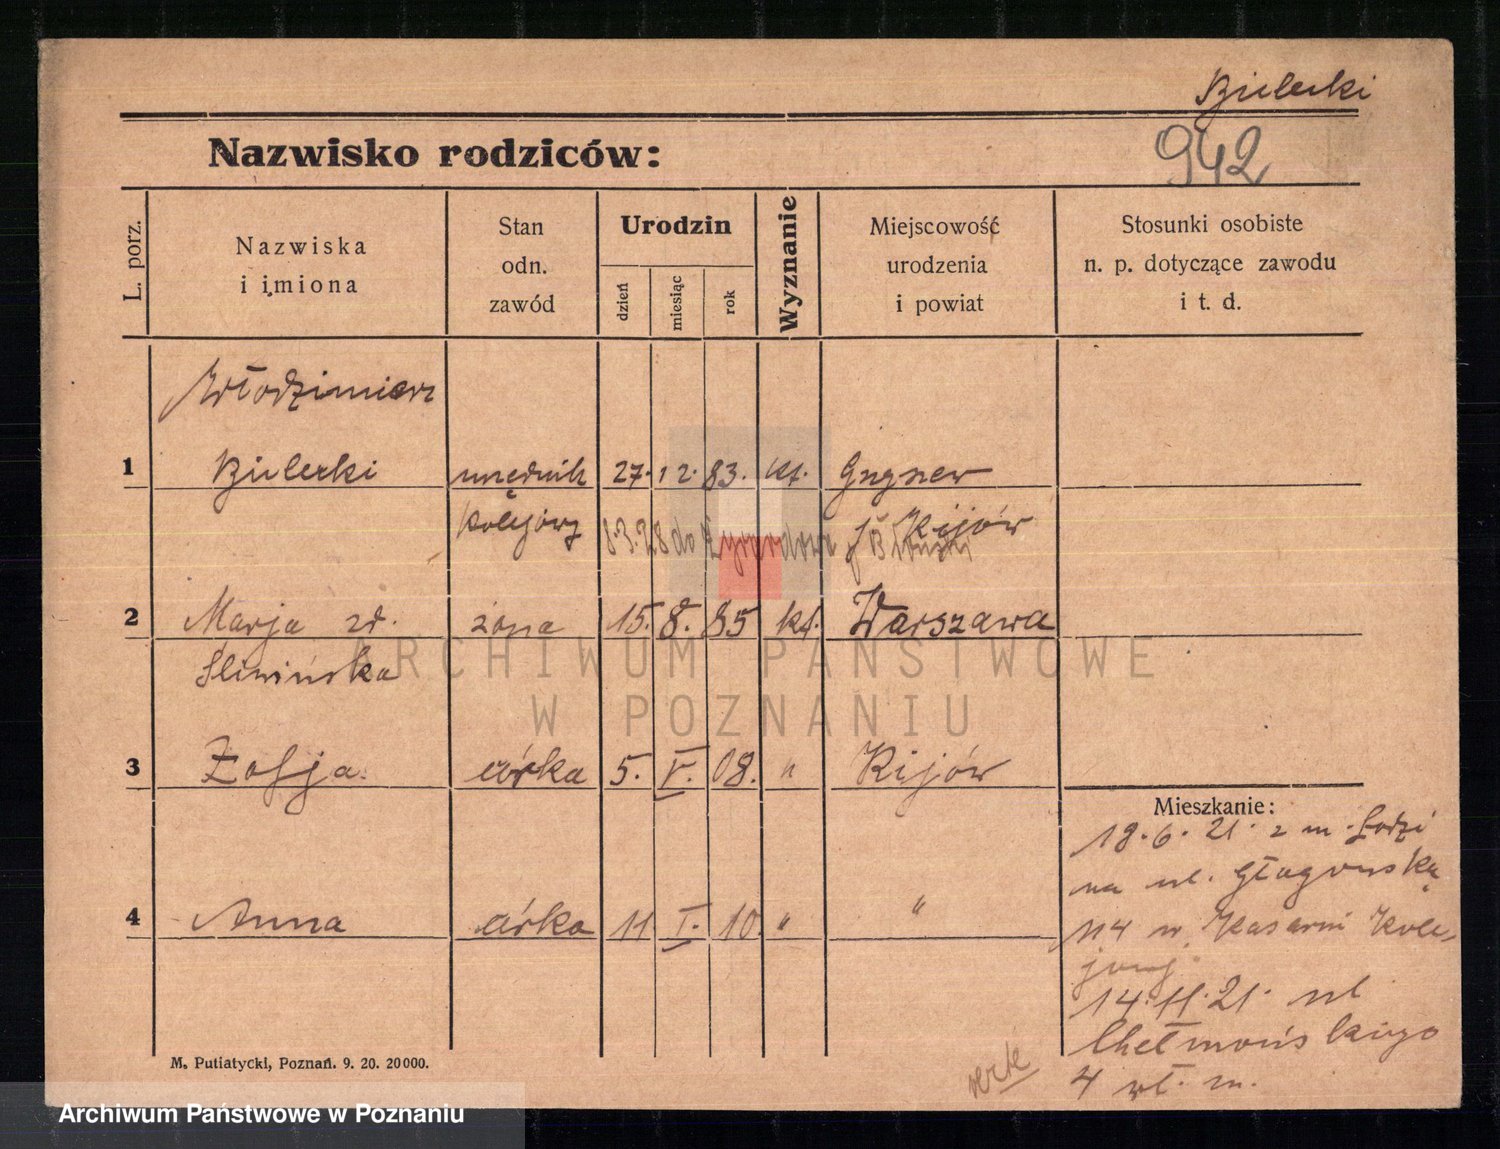 Bielecki
942
Nazwisko rodziców:
L. porz.
Nazwiska
i imiona
Stan
odn.
zawód
Urodzin
dzień
miesiąc
rok
Wyznanie
Miejscowość
urodzenia
i powiat
Stosunki osobiste
n. p. dotyczące zawodu
i t. d.
Włodzimierz
1 Bielecki urzędnik 27. 12. 83. kt.
kolejowy Kijów
8.3.28 do Żyrardowa
2 Marja zd. żona 15. 8. 85 kt. Warszawa
Śliwińska
3 Zofja córka 5. V. 08. " Kijów
4 Anna córka 11 I. 10. " "
Mieszkanie:
18.6.21. z m. Łodzi
na ul. Głogowską
114 w Kasarni Kole-
jowej
14.11.21. ul
Chełmońskiego
4 wł. m.
M. Putiatycki, Poznań. 9. 20. 20000.
ARCHIWUM PAŃSTWOWE
W POZNANIU
Archiwum Państwowe w Poznaniu